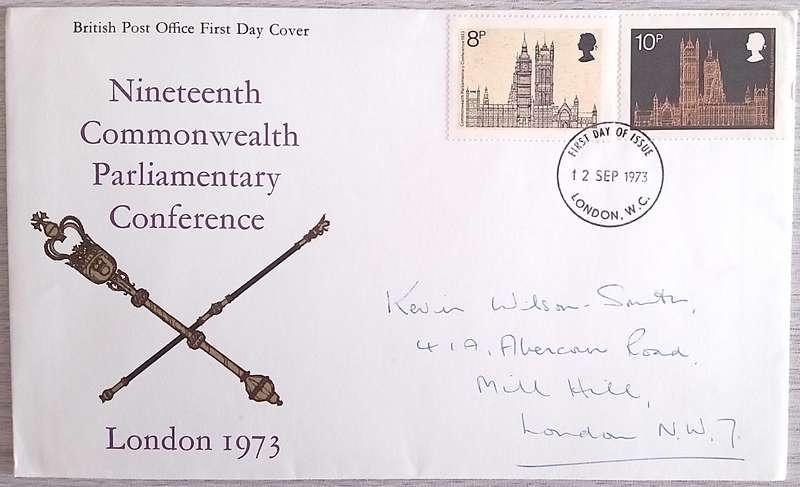 British Post Office First Day Cover
8P
10P
Nineteenth
Commonwealth
Parliamentary
Conference
FIRST DAY OF ISSUE
12 SEP 1973
LONDON, W.C.
Kevin Wilson-Smith,
41A, Abercorn Road,
Mill Hill,
London N.W.7.
London 1973